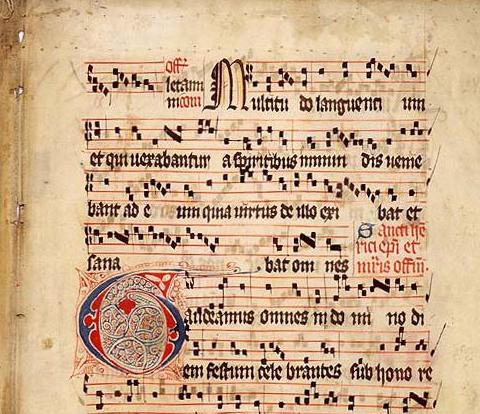 offr
letam
in com Multitu do languenti um
et qui uexabantur a spiritibus inmun dis uenie
bant ad e um quia uirtus de illo exi bat et
Sancti he
rici epi et
sana bat om nes mris offm
Gaudeamus omnes in do mi no di
em festum cele brantes sub hono re